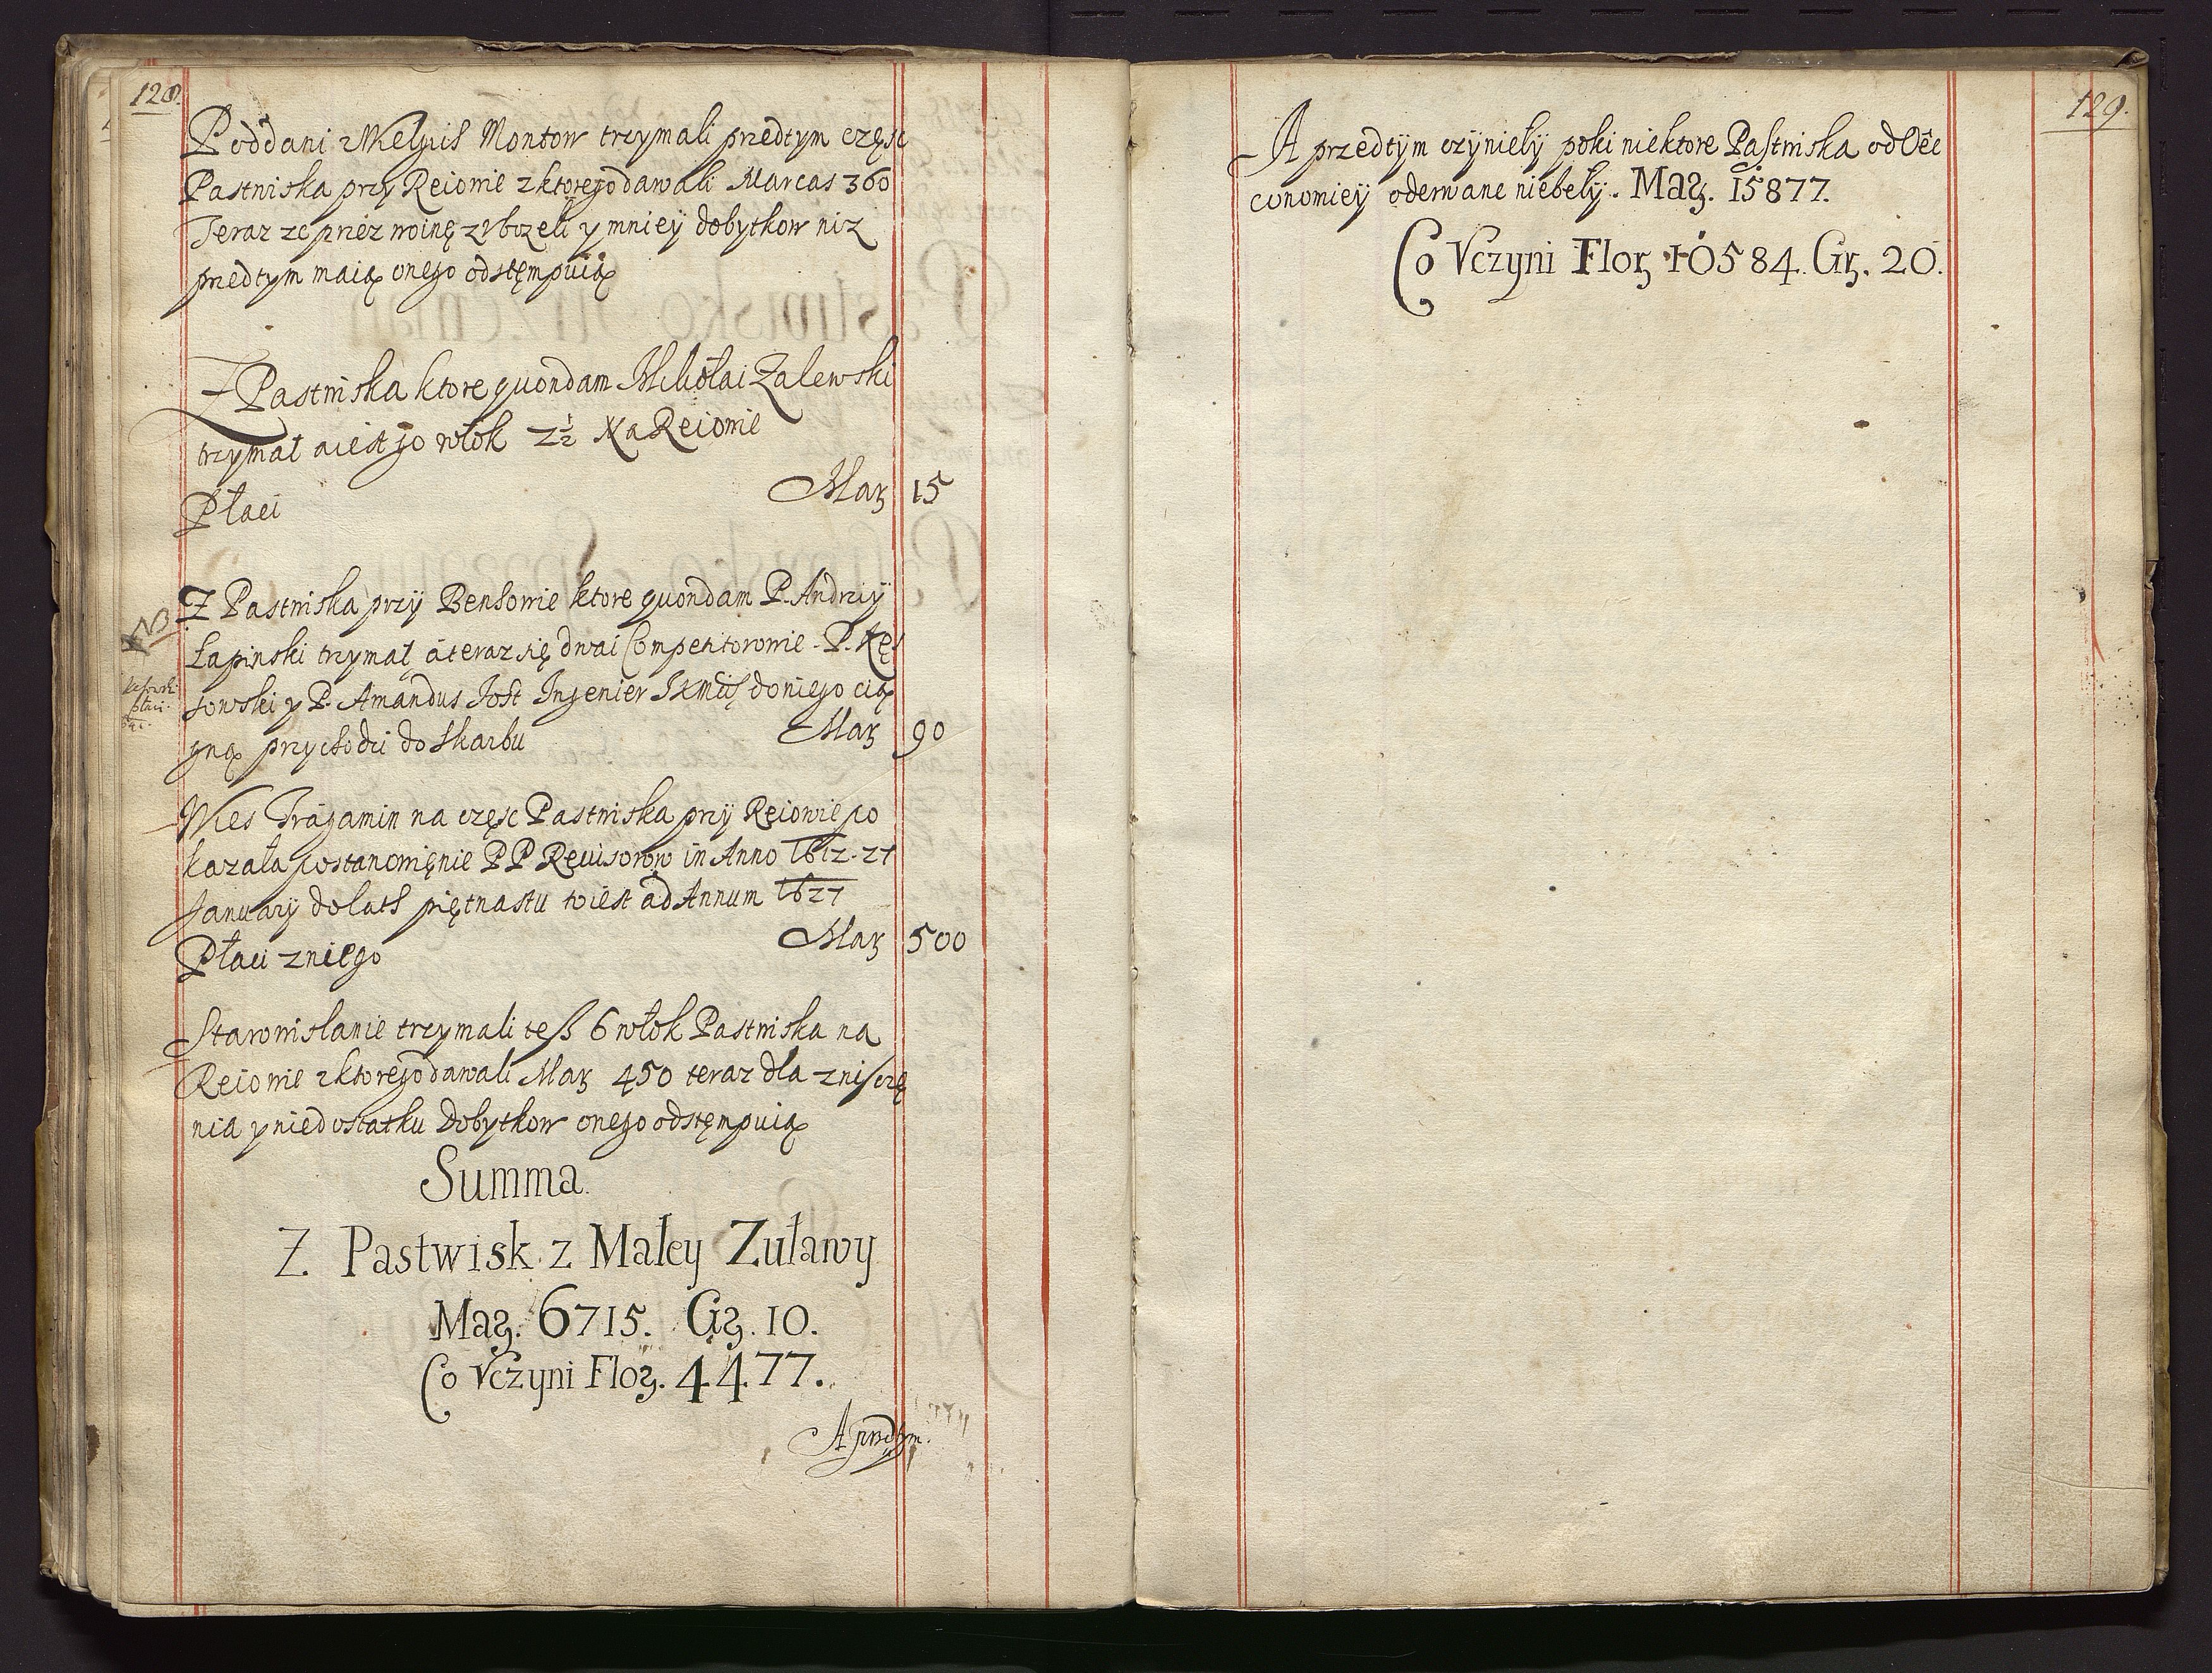 128.
Poddani z Wielgich Montow trzymali przedtym częsc
Pastwiska przy Reiowie z ktorego dawali Marcas 360
Teraz ze przez woinę zubozeli y mniey dobytkow niz
przedtym maią onego odstęmpuią
Z Pastwiska ktore quondam Mikołai Zalewski
trzymał a iest go włok 2½ Na Reiowie
Płaci Mar 15
NB
Z Pastwiska przÿ Benhowie ktore quondam P. Andrzÿ
Łapinski trzymał ȧ teraz się dwai Competitorowie P. Kęs
sowski y P. Amandus Jost Ingenier JKMci do niego cią
gną przychodzi do skarbu Mar 90
Wies Tragamin na częsc Pastwiska przÿ Reiowie po
kazała postanowięnie PP Rewisorow in Anno 1612. 27
Januarÿ do lath piętnastu to iest ad Annum 1627
Płaci z niego Mar 500
Starowislanie trzymali teß 6 włok Pastwiska na
Reiowie z ktorego dawali Mar 450 teraz dla znisczę
nia y niedostatku dobytkow onego odstęmpuią
Summa.
Z. Pastwisk z Małey Zuławy
Mar. 6715. Gr. 10.
Co Vczyni Flor. 4477.
A przedtym.
129.
A przedtÿm czÿniełÿ poki niektore Pastwiska od Oec
conomieÿ oderwane niebełÿ. Mar. 15877.
Co Vczyni Flor 10584. Gr. 20.